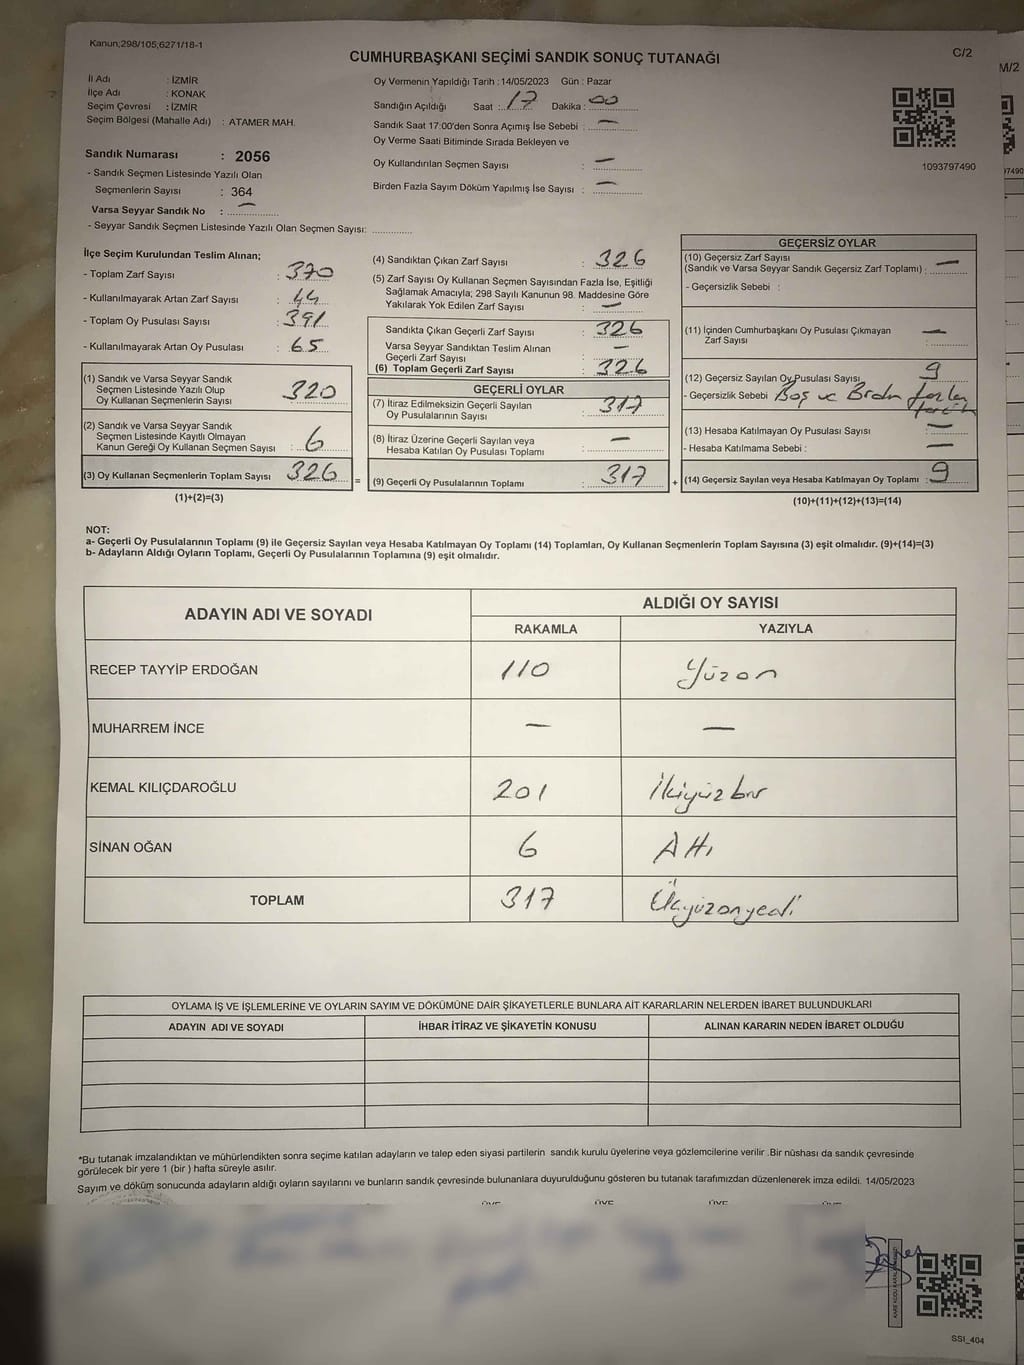 Kanun;298/105,6271/18-1
CUMHURBAŞKANI SEÇİMİ SANDIK SONUÇ TUTANAĞI
C/2
M/2
İl Adı : İZMİR
İlçe Adı : KONAK
Seçim Çevresi : İZMİR
Seçim Bölgesi (Mahalle Adı) : ATAMER MAH.
Sandık Numarası : 2056
- Sandık Seçmen Listesinde Yazılı Olan
Seçmenlerin Sayısı : 364
Varsa Seyyar Sandık No : —
- Seyyar Sandık Seçmen Listesinde Yazılı Olan Seçmen Sayısı: ............
Oy Vermenin Yapıldığı Tarih :14/05/2023 Gün : Pazar
Sandığın Açıldığı Saat : 17 Dakika : 00
Sandık Saat 17:00'den Sonra Açımış İse Sebebi : —
Oy Verme Saati Bitiminde Sırada Bekleyen ve
Oy Kullandırılan Seçmen Sayısı : —
Birden Fazla Sayım Döküm Yapılmış İse Sayısı : —
1093797490
7490
İlçe Seçim Kurulundan Teslim Alınan;
- Toplam Zarf Sayısı : 370
- Kullanılmayarak Artan Zarf Sayısı : 44
- Toplam Oy Pusulası Sayısı : 391
- Kullanılmayarak Artan Oy Pusulası : 65
(1) Sandık ve Varsa Seyyar Sandık
Seçmen Listesinde Yazılı Olup
Oy Kullanan Seçmenlerin Sayısı : 320
(2) Sandık ve Varsa Seyyar Sandık
Seçmen Listesinde Kayıtlı Olmayan
Kanun Gereği Oy Kullanan Seçmen Sayısı : 6
(3) Oy Kullanan Seçmenlerin Toplam Sayısı 326
(1)+(2)=(3)
(4) Sandıktan Çıkan Zarf Sayısı : 326
(5) Zarf Sayısı Oy Kullanan Seçmen Sayısından Fazla İse, Eşitliği
Sağlamak Amacıyla; 298 Sayılı Kanunun 98. Maddesine Göre
Yakılarak Yok Edilen Zarf Sayısı : —
Sandıkta Çıkan Geçerli Zarf Sayısı : 326
Varsa Seyyar Sandıktan Teslim Alınan
Geçerli Zarf Sayısı : —
(6) Toplam Geçerli Zarf Sayısı : 326
GEÇERLİ OYLAR
(7) İtiraz Edilmeksizin Geçerli Sayılan
Oy Pusulalarının Sayısı : 317
(8) İtiraz Üzerine Geçerli Sayılan veya
Hesaba Katılan Oy Pusulası Toplamı : —
= (9) Geçerli Oy Pusulalarının Toplamı : 317
GEÇERSİZ OYLAR
(10) Geçersiz Zarf Sayısı
(Sandık ve Varsa Seyyar Sandık Geçersiz Zarf Toplamı) : —
- Geçersizlik Sebebi :
(11) İçinden Cumhurbaşkanı Oy Pusulası Çıkmayan
Zarf Sayısı : —
(12) Geçersiz Sayılan Oy Pusulası Sayısı : 9
- Geçersizlik Sebebi Boş ve Birden fazla
tercih
(13) Hesaba Katılmayan Oy Pusulası Sayısı : —
- Hesaba Katılmama Sebebi : —
+ (14) Geçersiz Sayılan veya Hesaba Katılmayan Oy Toplamı : 9
(10)+(11)+(12)+(13)=(14)
NOT:
a- Geçerli Oy Pusulalarının Toplamı (9) ile Geçersiz Sayılan veya Hesaba Katılmayan Oy Toplamı (14) Toplamları, Oy Kullanan Seçmenlerin Toplam Sayısına (3) eşit olmalıdır. (9)+(14)=(3)
b- Adayların Aldığı Oyların Toplamı, Geçerli Oy Pusulalarının Toplamına (9) eşit olmalıdır.
ADAYIN ADI VE SOYADI
ALDIĞI OY SAYISI
RAKAMLA YAZIYLA
RECEP TAYYİP ERDOĞAN 110 Yüzon
MUHARREM İNCE — —
KEMAL KILIÇDAROĞLU 201 İkiyüz bir
SİNAN OĞAN 6 Altı
TOPLAM 317 Üçyüzonyedi
OYLAMA İŞ VE İŞLEMLERİNE VE OYLARIN SAYIM VE DÖKÜMÜNE DAİR ŞİKAYETLERLE BUNLARA AİT KARARLARIN NELERDEN İBARET BULUNDUKLARI
ADAYIN ADI VE SOYADI İHBAR İTİRAZ VE ŞİKAYETİN KONUSU ALINAN KARARIN NEDEN İBARET OLDUĞU
*Bu tutanak imzalandıktan ve mühürlendikten sonra seçime katılan adayların ve talep eden siyasi partilerin sandık kurulu üyelerine veya gözlemcilerine verilir .Bir nüshası da sandık çevresinde
görülecek bir yere 1 (bir ) hafta süreyle asılır.
Sayım ve döküm sonucunda adayların aldığı oyların sayılarını ve bunların sandık çevresinde bulunanlara duyurulduğunu gösteren bu tutanak tarafımızdan düzenlenerek imza edildi. 14/05/2023
ÜYE ÜYE ÜYE ÜYE
SSI_404